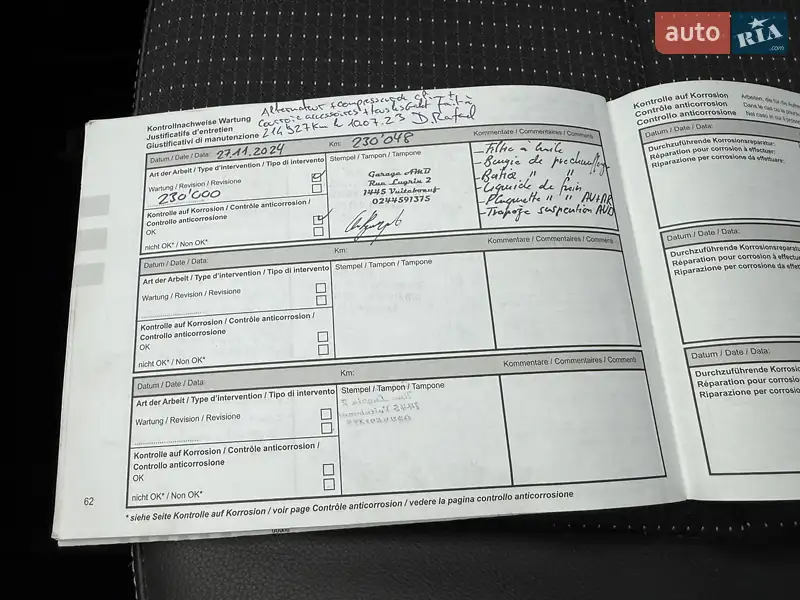 auto RIA .com
Alternateur + compresseur de
Courroie accessoires + tous les
214'527km le 10.07.23 D. Rafael
Kontrollnachweise Wartung
Justificatifs d'entretien
Giustificativi di manutenzione
Datum / Date / Data: 27.11.2024 Km: 230'048 Kommentare / Commentaires / Commenti
Art der Arbeit / Type d'intervention / Tipo di intervento
Wartung / Revision / Revisione
230'000
Kontrolle auf Korrosion / Contrôle anticorrosion /
Controllo anticorrosione
OK
nicht OK* / Non OK*
Stempel / Tampon / Tampone
Garage AMB
Rue Lugrin 2
1445 Vuiteboeuf
0244591375
- Filtre à huile
- Bougie de préchauffage
- Boitié " "
- Liquide de frein
- Plaquette " " AV+AR
- Trapèze suspention AVD
Datum / Date / Data: Km: Kommentare / Commentaires / Commenti
Art der Arbeit / Type d'intervention / Tipo di intervento
Wartung / Revision / Revisione
Kontrolle auf Korrosion / Contrôle anticorrosion /
Controllo anticorrosione
OK
nicht OK* / Non OK*
Stempel / Tampon / Tampone
Datum / Date / Data: Km: Kommentare / Commentaires / Commenti
Art der Arbeit / Type d'intervention / Tipo di intervento
Wartung / Revision / Revisione
Kontrolle auf Korrosion / Contrôle anticorrosion /
Controllo anticorrosione
OK
nicht OK* / Non OK*
Stempel / Tampon / Tampone
62
* siehe Seite Kontrolle auf Korrosion / voir page Contrôle anticorrosion / vedere la pagina controllo anticorrosione
Kontrolle auf Korrosion
Contrôle anticorrosion
Controllo anticorrosione
Arbeiten, die für die
Dans le cas où le
Nel caso in cui
Datum / Date / Data:
Durchzuführende Korrosionsreparatur:
Réparation pour corrosion à effectuer:
Riparazione per corrosione da effettuare:
Datum / Date / Data:
Durchzuführende Korrosionsreparatu
Réparation pour corrosion à effectue
Riparazione per corrosione da effettua
Datum / Date / Data:
Durchzuführende Korrosio
Réparation pour corrosio
Riparazione per corrosio